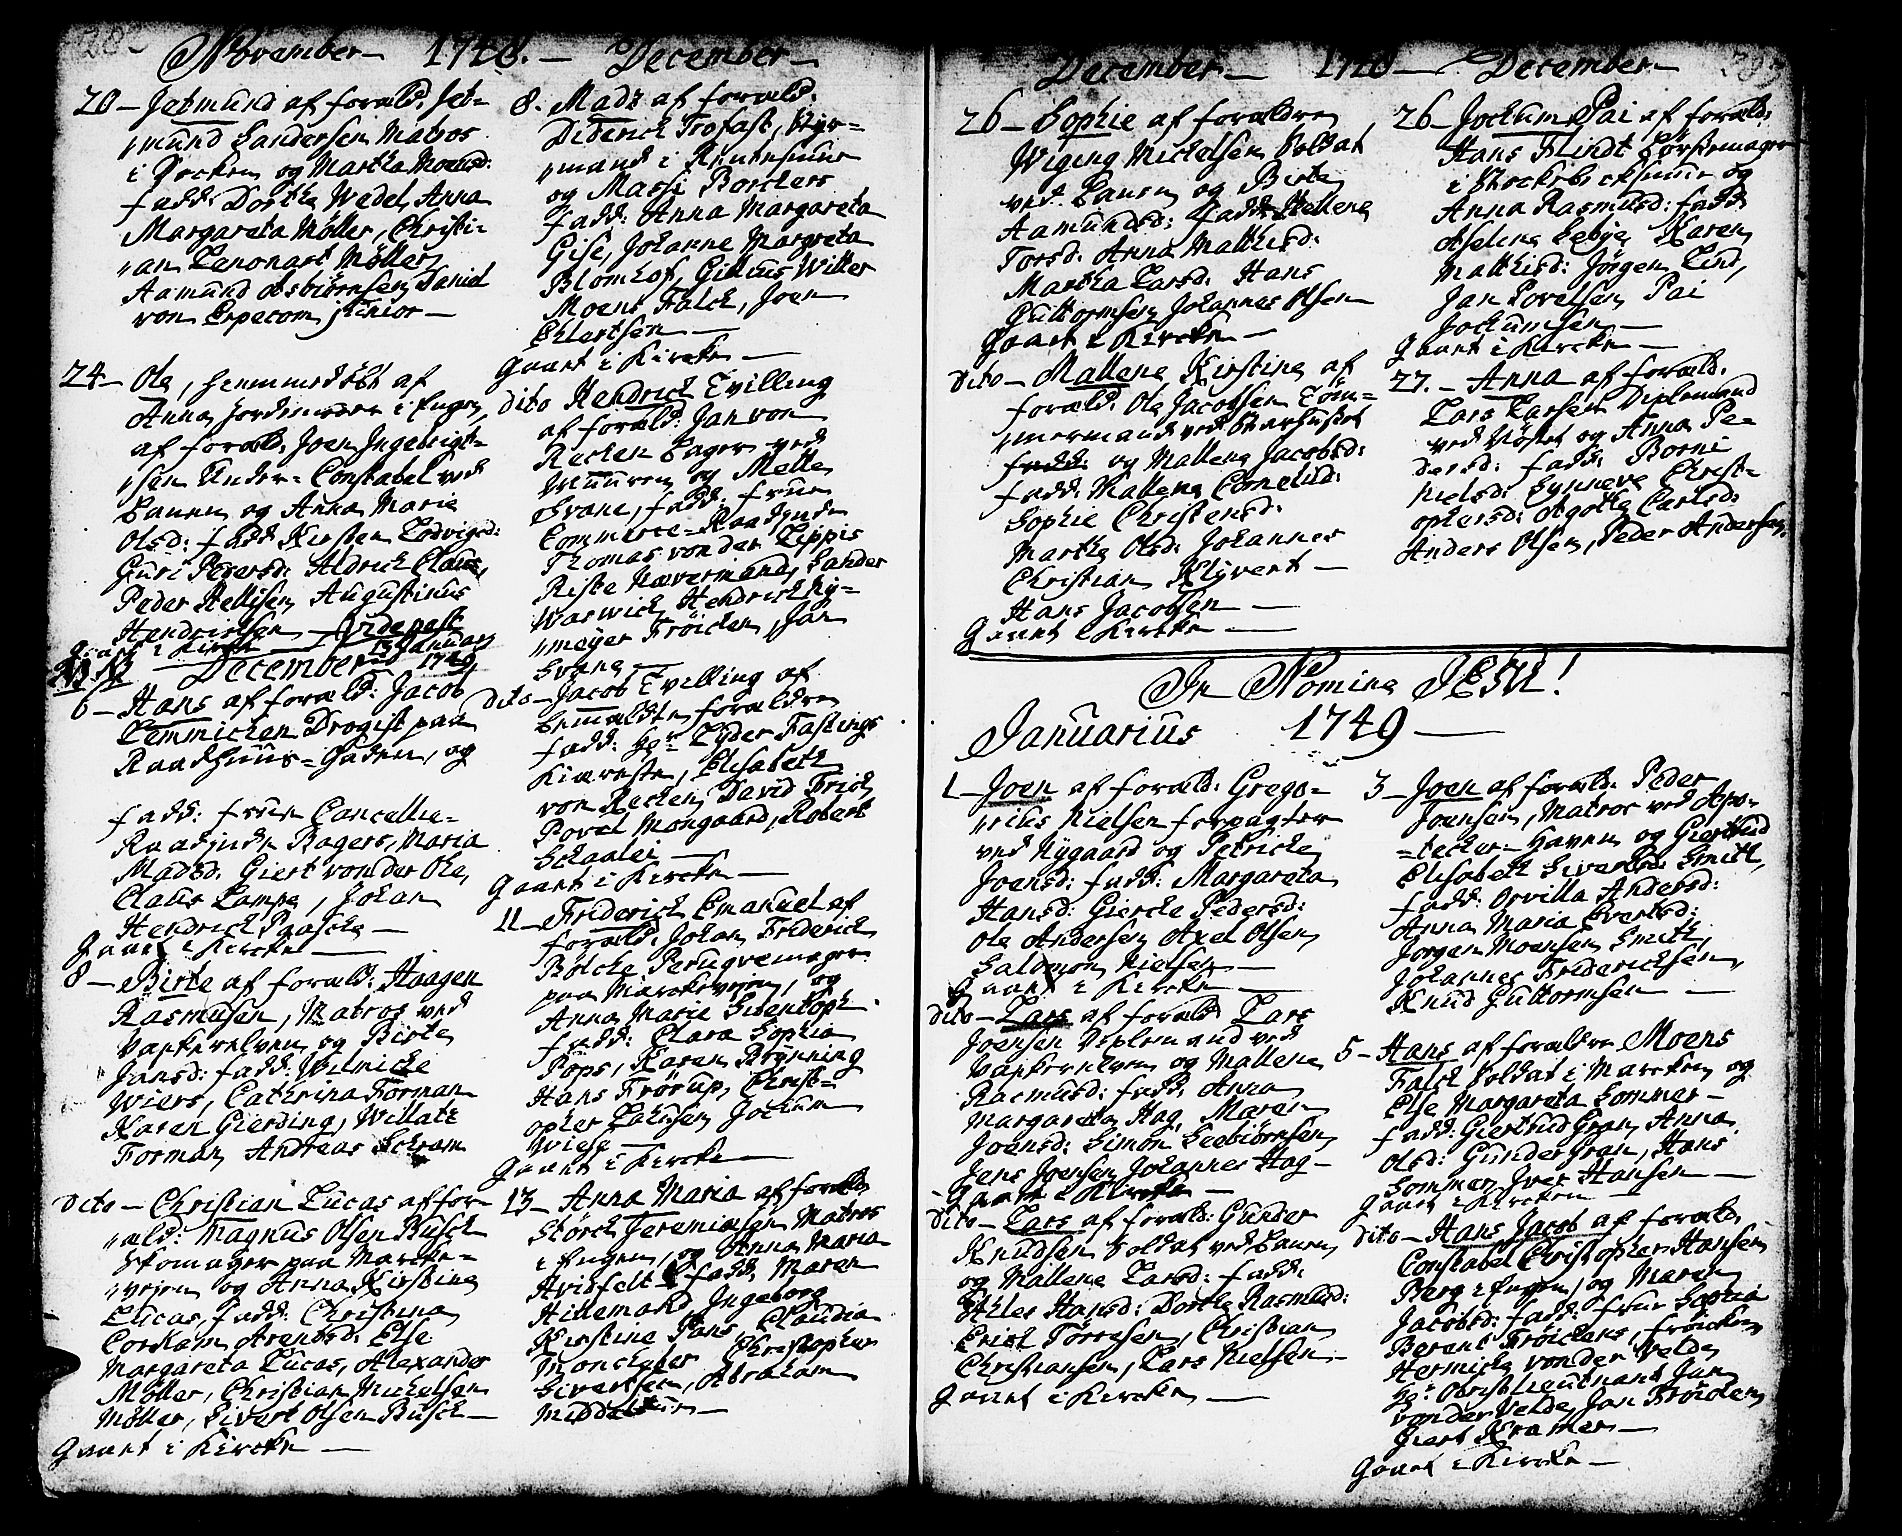 November — 1748. — December —
20 — Jetmund af foræld. Jet-
mund Sandersen Matros
i Zocken og Martha Moensd:
fadd: Dorthe Wedel, Anna
Margareta Möller, Christi-
an Lenonart Möller,
Aamund Asbiörnsen, Daniel
von Erpecom junior —
24 — Ole, hiemmedöbt af
Anna Jordemoder i Engen,
af foræld. Joen Ingebrigt-
sen Under-Constabel ved
og Anna Marie
Olsd: fadd Kirsten Lodvigsd:
Guri Pedersd: Aldrich Claus,
Peder Hellisen, Augustinus
Hendrichsen —
Gaaet i Kircke — 13 Januar
December 1749
6 — Hans af foræld: Jacob
Lemmichen Drogist paa
Raadhuus-Gaden, og
fadd: Frue Cancellie-
Raadinde Rogers, Maria
Madsd. Giert von der Ohe,
Claus Lampe, Johan
Hendrich Paasche —
Gaaet i Kircke —
8 — Birte af foræld: Haagen
Rasmusen, Matros ved
Vaskerelven og Birte
Jansd: fadd: Wilmicke
Wiers, Cathrina Forman
Karen Gierding, Willatz
Forman, Andreas Schram
Dito — Christian Lucas af for-
æld: Magnus Olsen Busch
Skomager paa Marcke-
vejen og Anna Kirstine
Lucas, fadd: Christina
Corham Arentsd: Else
Margareta Lucas, Alexander
Möller, Christian Michelsen
Möller, Sivert Olsen Busch —
Gaaet i Kircke —
8. Madz af foræld.
Diderich Trofast, Styr-
mand i
og Massi Borchers
fadd: Anna Margareta
Gise, Johanne Margreta
Blomhof, Gillius Wilter
Moens Falck, Joen
Ehlertsen —
Gaaet i Kircke —
dito Hendrich Tvilling
af foræld: Jan von
Recken Bager ved
Muuren og Mette
Svane, fadd: Frue
Commerce-Raadinde
Thomas von der Lippis
Riste Nævermand, Sander
Warwich, Hendrich Ny-
meyer Fröichen, Jan
Svane —
Dito — Jacob Tvilling af
bemældte forældre
fadd: Hr: Lyder Fastings
Kiæreste, Elisabeth
von Recken, David Frich,
Povel Mongaard, Robert
Schaalei —
Gaaet i Kircke —
11 — Friderich Emanuel af
foræld. Johan Friderich
Bölcke Perugvemager
paa Marckevejen, og
Anna Marie
fadd: Clara Sophia
Pöps, Karen Brynning
Hans Frörup, Christ-
opher Jochum
Wiese —
Gaaet i Kircke —
13 — Anna Maria af foræld:
Störck Jeremiasen Matros
i Engen, og Anna Maria
Hvidfelt fadd: Maren
Hillemand, Ingeborg
Kirstine Pans, Claudia
Christopher
Sivertsen, Abraham
Middelthun —
December — 1748 — December —
26 — Sophie af forældre
Wiging Michelsen Soldat
ved og Birte
Aamundsd: fadd: Hellene
Torsd: Anna Mathisd:
Martha Larsd. Hans
Guttormsen, Johannes Olsen —
Gaaet i Kircke —
Dito — Mallene Kirstine af
foræld. Ole Jacobsen Töm-
mermand ved
og Mallene Jacobsd:
fadd: Mallene Cornelisd:
Sophie Christensd:
Marthe Olsd: Johannes
Christian Klyvert —
Hans Jacobsen —
Gaaet i Kircke —
26 — Jochum Pai af foræld.
Hans Flindt Börstemager
i og
Anna Rasmusd: fadd
Aselene Lebye, Karen
Mathisd: Jörgen Lind,
Jan Povelsen, Pai
Jochumsen —
Gaaet i Kircke —
27. — Anna af foræld.
Lars Larsen
ved og Anna Pe-
dersd: fadd: Borni
Nielsd: Synneve Christ-
ophersd: Agothe Carlsd:
Anders Olsen, Peder Andersen.
In Nomine JESU!
Januarius 1749 —
1 — Joen af foræld: Grego-
rius Nielsen forpagter
ved Nygaard og Petricke
Joensd: fadd: Margareta
Hansd: Giercke Pedersd:
Ole Andersen, Axel Olsen,
Salomon Nielsen —
Gaaet i Kircke —
dito — Lars af foræld Lars
Joensen ved
Vaskerelven og Mallene
Rasmusd: fadd: Anna
Margareta Hag, Maren
Joensd: Simon Seebiörnsen,
Jens Joensen, Johannes Hag —
Gaaet i Kircke —
Dito — Lars af foræld: Gunder
Knudsen Soldat ved
og Mallene Larsd: fadd:
Ehler Hansd: Dorthe Rasmusd:
Erich Törresen, Christian
Christiansen, Lars Nielsen —
Gaaet i Kircke —
3 — Joen af foræld. Peder
Joensen, Matros ved Apo-
techer-Haven og Giertrud
Elisabeth Sivertsd: Smith,
fadd: Orvilla Andersd:
Anna Maria Evertsd:
Jörgen Moensen Smith,
Johannes Friderichsen,
Knud Guttormsen —
5 — Hans af forældre Moens
Falck Soldat i Marcken og
Else Margareta Sommer —
fadd: Giertrud Gran, Anna
Olsd: Gunder Gran, Hans
Sommer, Iver Hansen —
Gaaet i Kircke —
dito — Hans Jacob af foræld.
Constabel Christopher Hansen
Berg i Engen, og Maren
Jacobsd: fadd: Frue Sophia
Berent Fröichens, fröicken
Hermicke von der Velde,
Hr: Obrist Lieutnant Jan
von der Velde, Jan Fröichen,
Giert Kramer —
Gaaet i Kircke —